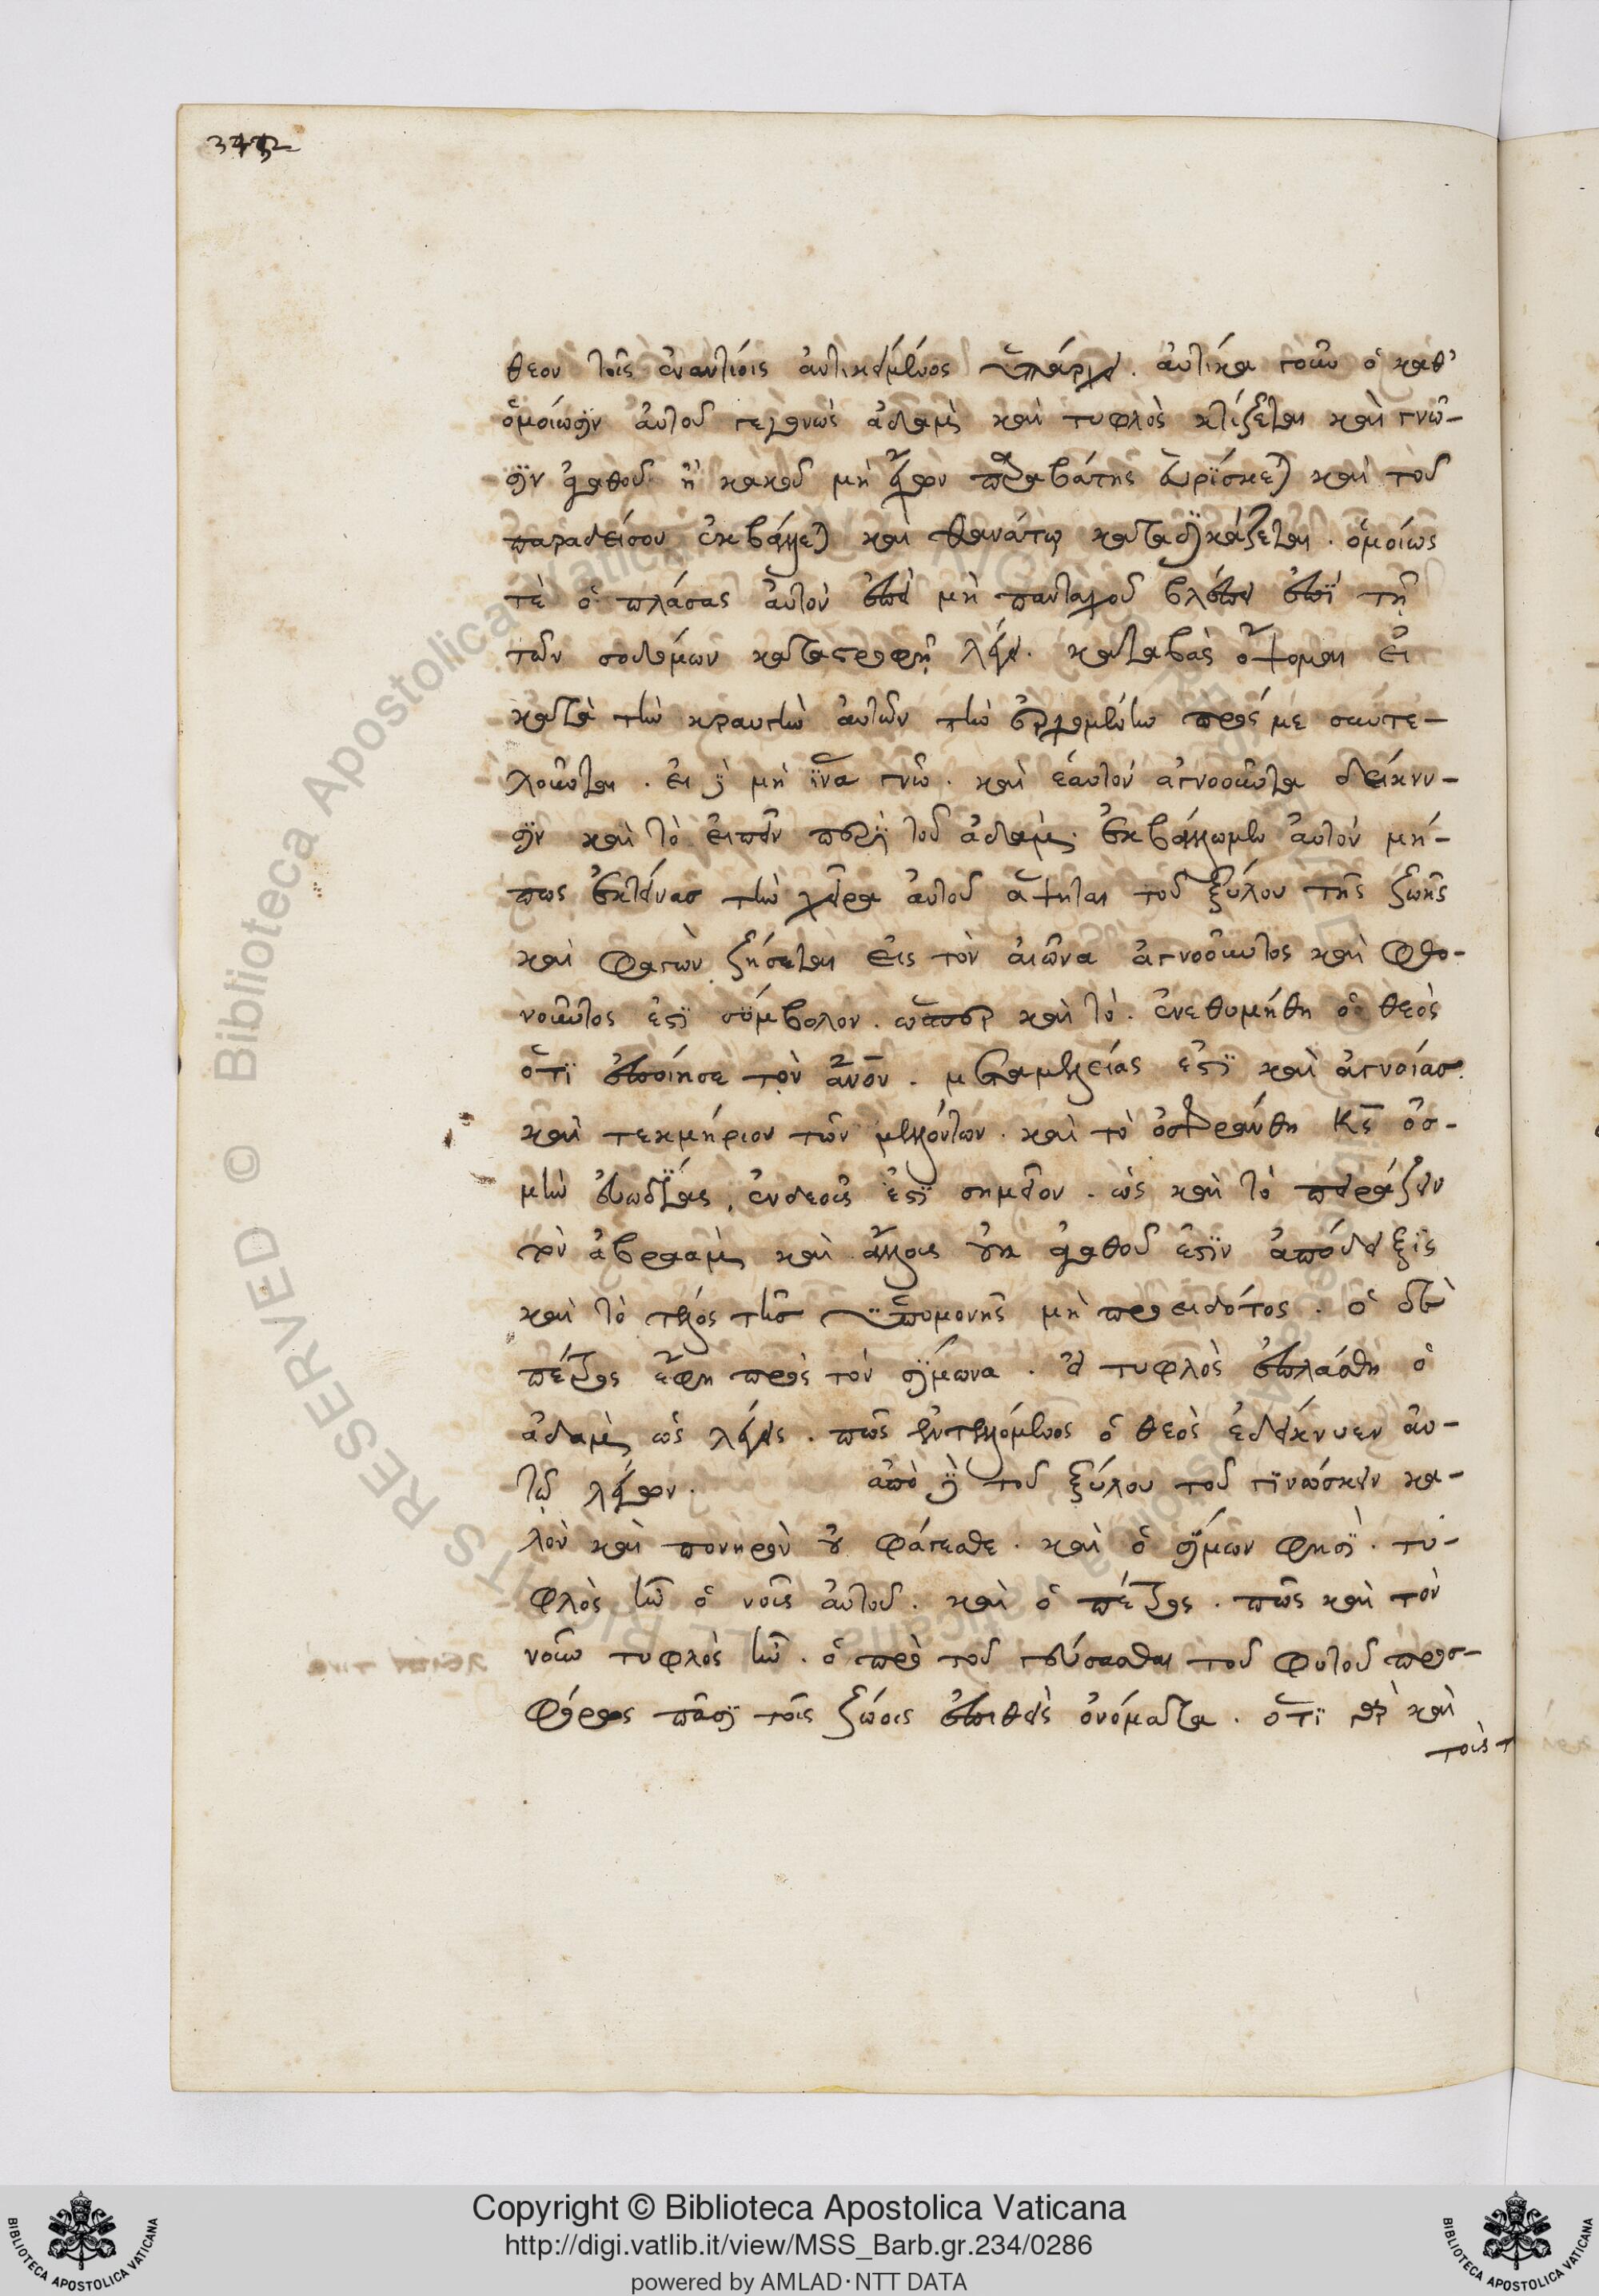 342
θεον τοῖς ἐναντίοις ἀντικείμενος ὑπάρχει. αὐτίκα γοῦν ὁ καθ'
ὁμοίωσϊν αὐτοῦ γεγονὼς ἀδὰμ καὶ τυφλὸς κτίζεται καὶ γνῶ-
σϊν ἀγαθοῦ ἢ κακοῦ μὴ ἔχων παραβάτης εὑρϊσκεται καὶ τοῦ
παραδείσου ἐκβάλλεται καὶ θανάτῳ καταδϊκάζεται. ὁμοίως
τὲ ὁ πλάσας αὐτὸν ἐπεὶ μὴ πανταχοῦ βλέπει ἐπϊ τῇ
τῶν σοδόμων καταστροφῇ λέγει. καταβὰς ὄψομαι εἰ
κατὰ τὴν κραυγὴν αὐτῶν τὴν ἐρχομένην πρός με συντε-
λοῦνται. εἰ δὲ μὴ ἵνα γνῶ. καὶ ἑαυτὸν ἀγνοοῦντα δείκνυ-
σϊν καὶ τὸ εἰπεῖν περϊ τοῦ ἀδάμ. ἐκβάλλωμεν αὐτὸν μή-
πως ἐκτείνας τὴν χεῖρα αὐτοῦ ἅψηται τοῦ ξύλου τῆς ζωῆς
καὶ φαγὼν ζήσεται εἰς τὸν αἰῶνα ἀγνοοῦντος καὶ φθο-
νοῦντος ἐστϊ σύμβολον. ὥσπερ καὶ τὸ. ἐνεθυμήθη ὁ θεὸς
ὅτϊ ἐποίησε τὸν ἄνον. μεταμελείας ἐστϊ καὶ ἀγνοίας.
καὶ τεκμήριον τῶν μελλόντων. καὶ τὸ ὀσφράνθη Κς ὀσ-
μὴν εὐωδϊας, ἐνδεοῦς ἐστϊ σημεῖον. ὡς καὶ τὸ πειράζειν
τὸν ἀβραὰμ καὶ ἄλλους οὐκ ἀγαθοῦ ἐστϊν ἀπόδειξϊς
καὶ τὸ τέλος τῆς ὑπομονῆς μὴ προειδότος. ὁ δὲ
πέτρος ἔφη πρὸς τὸν σϊμωνα. εἰ τυφλὸς ἐπλάσθη ὁ
ἀδὰμ ὡς λέγεις. πῶς ἐντελλόμενος ὁ θεὸς ἐδείκνυεν αὐ-
τῷ λέγων. ἀπὸ δὲ τοῦ ξύλου τοῦ γϊνώσκειν κα-
λὸν καὶ πονηρὸν οὐ φάγεσθε. καὶ ὁ σϊμων φησϊ. τυ-
φλὸς ἦν ὁ νοῦς αὐτοῦ. καὶ ὁ πέτρος. πῶς καὶ τὸν
νοῦν τυφλὸς ἦν. ὁ πρὸ τοῦ γεύσασθαι τοῦ φυτοῦ προσ-
φόρως πᾶσϊ τοῖς ζώοις ἐπιθεὶς ὀνόματα. ὅτϊ γὰρ καὶ
τοῖς τ
Copyright © Biblioteca Apostolica Vaticana
http://digi.vatlib.it/view/MSS_Barb.gr.234/0286
powered by AMLAD·NTT DATA